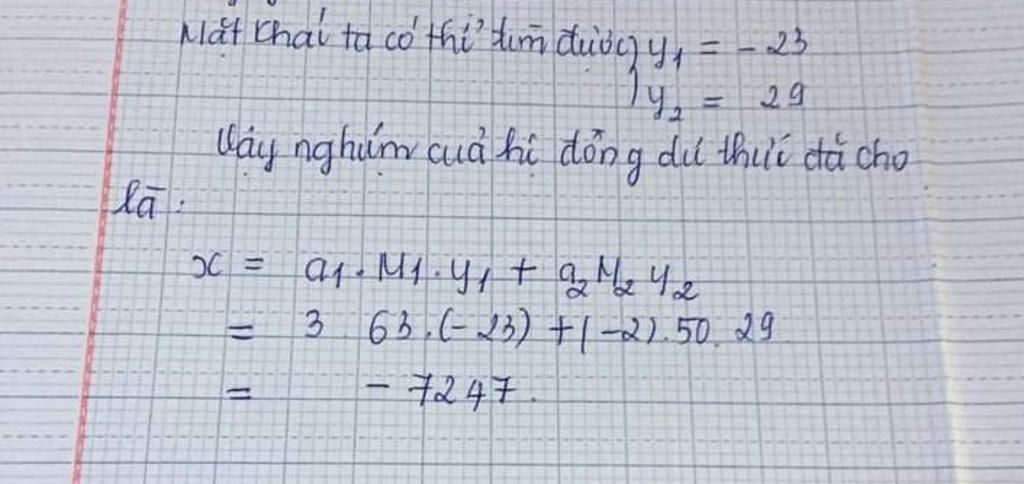 Mặt khác ta có thể tìm được y₁ = - 23
y₂ = 29
Vậy nghiệm của hệ đồng dư thức đã cho
là :
x = a₁ . M₁ . y₁ + a₂ M₂ y₂
= 3 63.(-23) + (-2).50. 29
= - 7247.